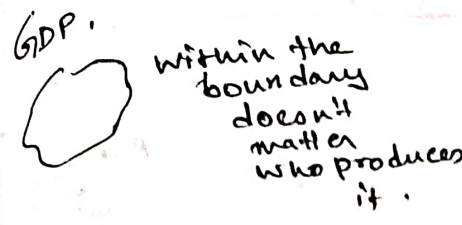 GDP.
within the
boundary
doesn't
matter
who produces
it.